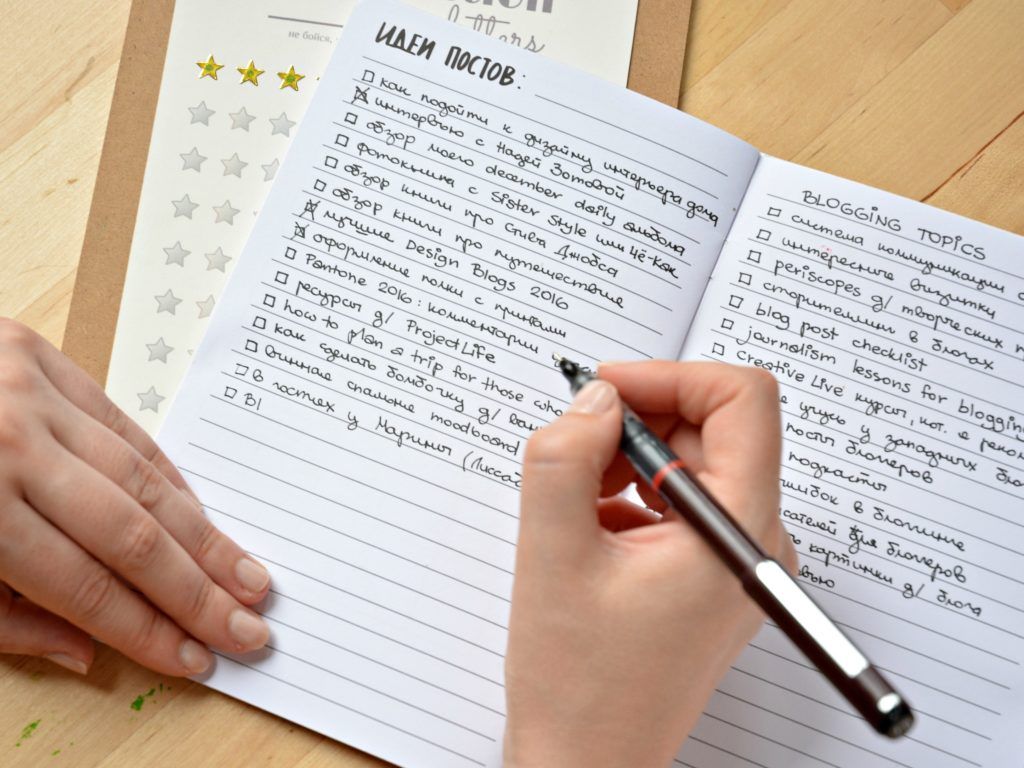 не бойся,
ИДЕИ ПОСТОВ:
как подойти к дизайну интерьера дома
интервью с Надей Зотовой
обзор моего december daily альбома
фотокнига с Sister Style или Чё-Как
обзор книги про Стива Джобса
обзор книги про путешествие
лучшие Design Blogs 2016
оформление полки с принтами
Pantone 2016: комментарии
ресурсы д/ Project Life
how to plan a trip for those who
как сделать бомбочку д/
винные спальные moodboard
в гостях у Марины
BLOGGING TOPICS
система коммуникации
интересные визитки
periscopes д/ творческих
сторителлинг в блогах
blog post checklist
journalism lessons for blogging
Creative Live курсы, кот. я
учусь у западных
посты блогеров
подкасты
ошибок в блоггинге
для блогеров
картинки д/ блога